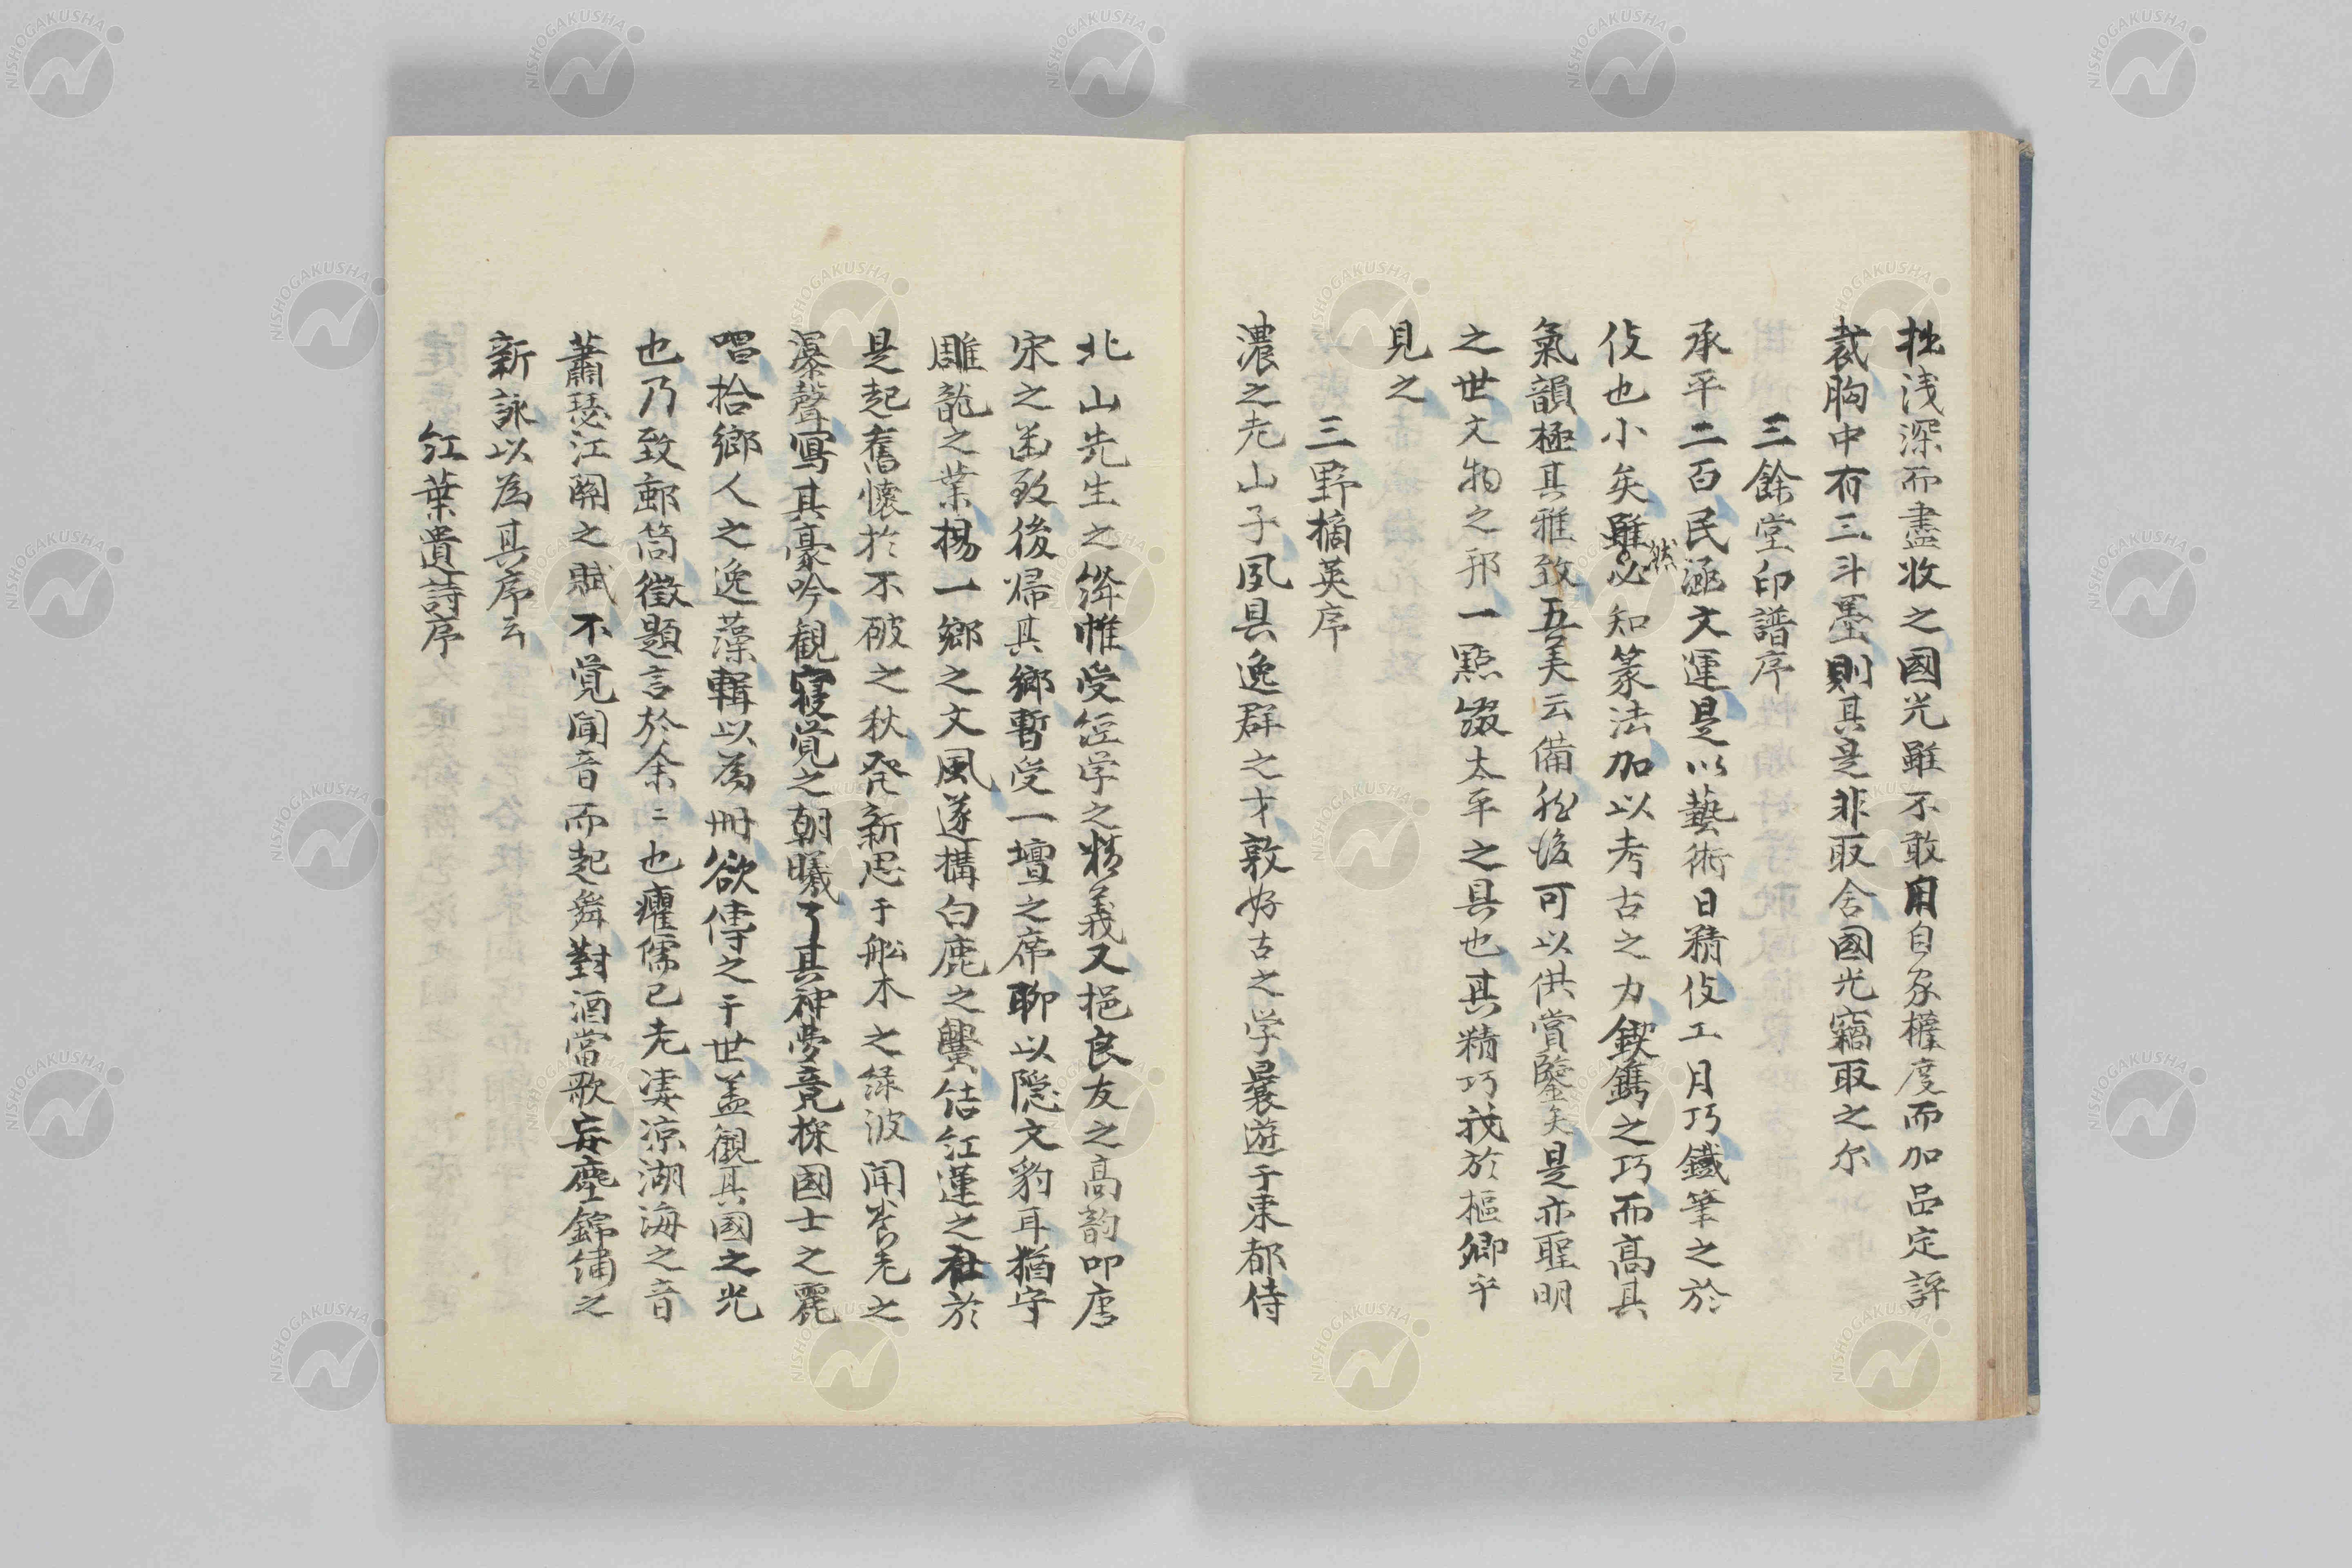 拙浅深而盡收之國光雖不敢用自家權度而加品定評
裁胸中有三斗墨則其是非取舍國光竊取之尔
三餘堂印譜序
承平二百民涵文運是以藝術日精伎工月巧鐵筆之於
伎也小矣雖然必知篆法加以考古之力鍥鐫之巧而高其
氣韻極其雅致吾夫云備然後可以供賞鑒矣是亦聖明
之世文物之邦一點綴太平之具也其精巧我於樞卿乎
見之
三野摘英序
濃之老山子夙具逸群之才敦好古之学曩遊于東都侍
北山先生之絳帷受経学之精義又挹良友之高韵叩唐
宋之函致後帰其鄉暫受一壇之席聊以隠文豹耳猶守
雕龍之業揚一鄉之文風遂構白鹿之黌結紅蓮之社於
是起舊懷於不破之秋発新思于船木之緑波聞養老之
瀑聲寫其豪吟觀寢覚之朝曦了其神夢竟採國士之麗
唱拾鄉人之逸藻輯以為冊欲傳之于世盖觀其國之光
也乃致郵筒徵題言於余〻也癯儒已老凄凉湖海之音
蕭瑟江関之賦不覚聞音而起舞對酒當歌妄塵錦繡之
新詠以為其序云
紅葉遺詩序
NISHOGAKUSHA